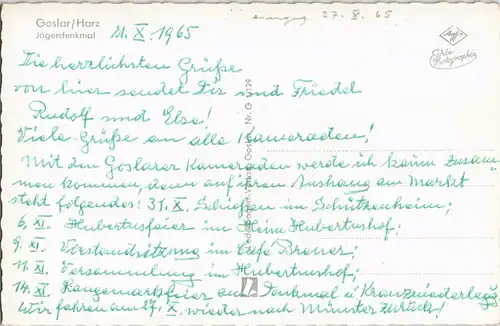 Goslar/Harz
Jägerdenkmal
21. X. 1965
27. X. 65
Agfa
Echte
Photographie
Die herzlichsten Grüße
von hier sendet Dir und Friedel
Rudolf und Else!
Viele Grüße an alle Kameraden!
Mit den Goslarer Kameraden werde ich kaum zusam-
men kommen, denn auf ihren Aushang am Markt
steht folgendes: 31. X. Schießen im Schützenheim;
6. XI. Hubertusfeier im Heim Hubertushof;
9. XI. Vorstandsitzung im Café Bremer;
11. XI. Versammlung im Hubertushof;
14. XI. Langemarkfeier am Denkmal u. Kranzniederlegg
Wir fahren am 27. X. wieder nach Münster zurück!
Goslar, Nr. G 1/129